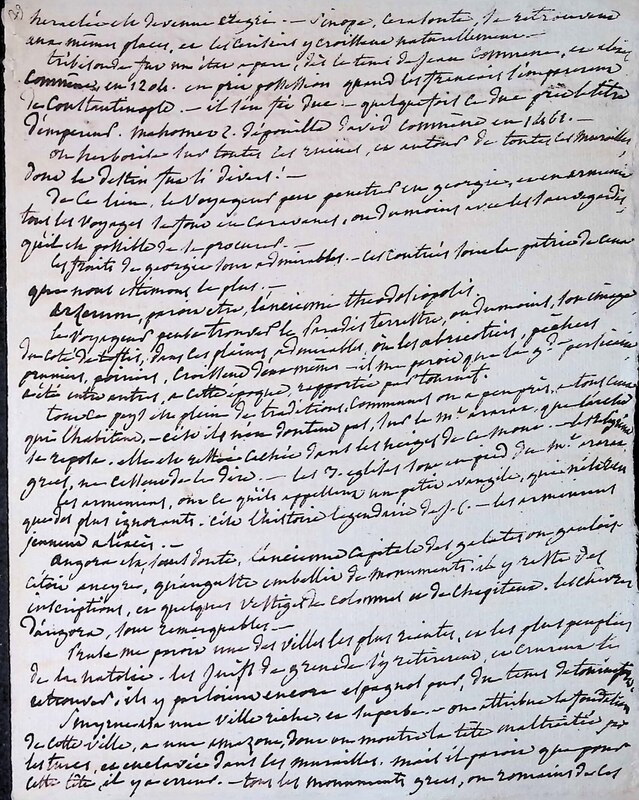 heraclée est devenue eregri. — Sinope, Cerasonte, se retrouvent
aux mêmes places, et les cerisiers y croissent naturellement. —
trébisonde fut un état a part, dès le tems de jean Commene, et alexis
Commene, en 1204. en prit possession quand les francais s'emparerent
de Constantinople. — il s'en fit duc — quelquefois ce duc prit le titre
d'empereur. mahomet 2. dépouilla david Commene en 1461. —
on herborise sur toutes ces ruines, et autour de toutes ces murailles,
dont le destin fut si divers! —
de ce lieu, le voyageur peut penetrer en georgie, et en armenie
tous les voyages se font en caravanes, ou du moins avec les sauvegardes,
qu'il est possible de se procurer. —
les fruits de georgie sont admirables. — ces contrées sont la patrie de ceux
que nous estimons le plus. —
arzerum, paroit etre, l'ancienne theodosiopolis.
le voyageur peut trouver le Paradis terrestre, ou du moins, son image
du coté de teflis, dans ces plaines, admirables, où les abricotiers, pêchers
pruniers, poiriers, croissent d'eux memes — il me paroit que la
a été entre autres, a cette époque rapportée par tournef.
tout ce pays est plein de traditions, communes ou a peu près, a tous ceux
qui l'habitent, — ceux ci n'en doutent pas, sur le mt. ararat, que l'arche
se reposa. elle est restée cachée dans les neiges de ce mont — les religieux
grecs, ne cessent de le dire. — les 3. eglises sont au pied du mt. ararat
les armeniens, ont ce qu'ils appellent un petit evangile, qui n'est lu
que des plus ignorants. c'est l'histoire legendaire de j. c. — les armeniens
jeunent a l'excès. —
angora est, sans doute, l'ancienne capitale des galates ou gaulois
c'etoit ancyre, qu'auguste embellit de monuments. il y reste des
inscriptions, et quelques vestiges de colonnes et de chapiteaux. les chèvres
d'angora, sont remarquables. —
Pruse me paroit une des villes les plus riantes, et les plus peuplées
de la natolie. les juifs de grenade s'y retirerent, et crurent la
retrouver, ils y parloient encore espagnol pur, du tems de tournefort,
Smyrne est une ville riche, et superbe — on attribue la fondation
de cette ville, a une amazone, dont on montre la tête maltraitée par
les turcs, et enclavée dans les murailles. mais il paroit que pour
cette tête, il y a erreur. — tous les monuments grecs, ou romains de ces